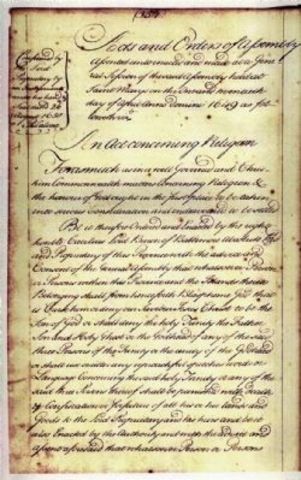 (354)
Acts and Orders of Assembly
assented unto
made at a Gene
ral Session of the said Assembly held at
Saint Maryes on the one and
day of Aprill Anno Domini 1649 as fol
loweth
Confirmed by
the Lord
Proprietary by
an Instrument
under his hand &
Seale the 26
August 1650
An Act concerning Religion
Forasmuch as in a well Governed and Chris
tian Common wealth matters Concerning Religion &
the honour of God ought in the first place to be taken
into serious Consideration and endeavoured to be settled
Be it therefore Ordered and Enacted by the right
honorable Cecilius Lord Baron of Baltemore absolute Lord
and Proprietary of this Province with the advice and
Consent of this Generall Assembly that whatsoever Person
or Persons within this Province and the Islands thereto
Belonging shall from henceforth Blaspheme God, that
is Curse him or deny our Saviour Jesus Christ to be the
Son of God or shall deny the holy Trinity the Father
Son and Holy Ghost or the Godhead of any of the said
three Persons of the Trinity or the unity of the Godhead
or shall use or utter any reproachfull Speeches word or
Language Concerning the said holy Trinity or any of the
said three Persons thereof shall be punished with Death
& Confiscation or forfeiture of all his or her Lands and
Goods to the Lord Proprietary and his heires and be it
also Enacted by the Authority and with the advice and
assent aforesaid that whatsoever Person or Persons